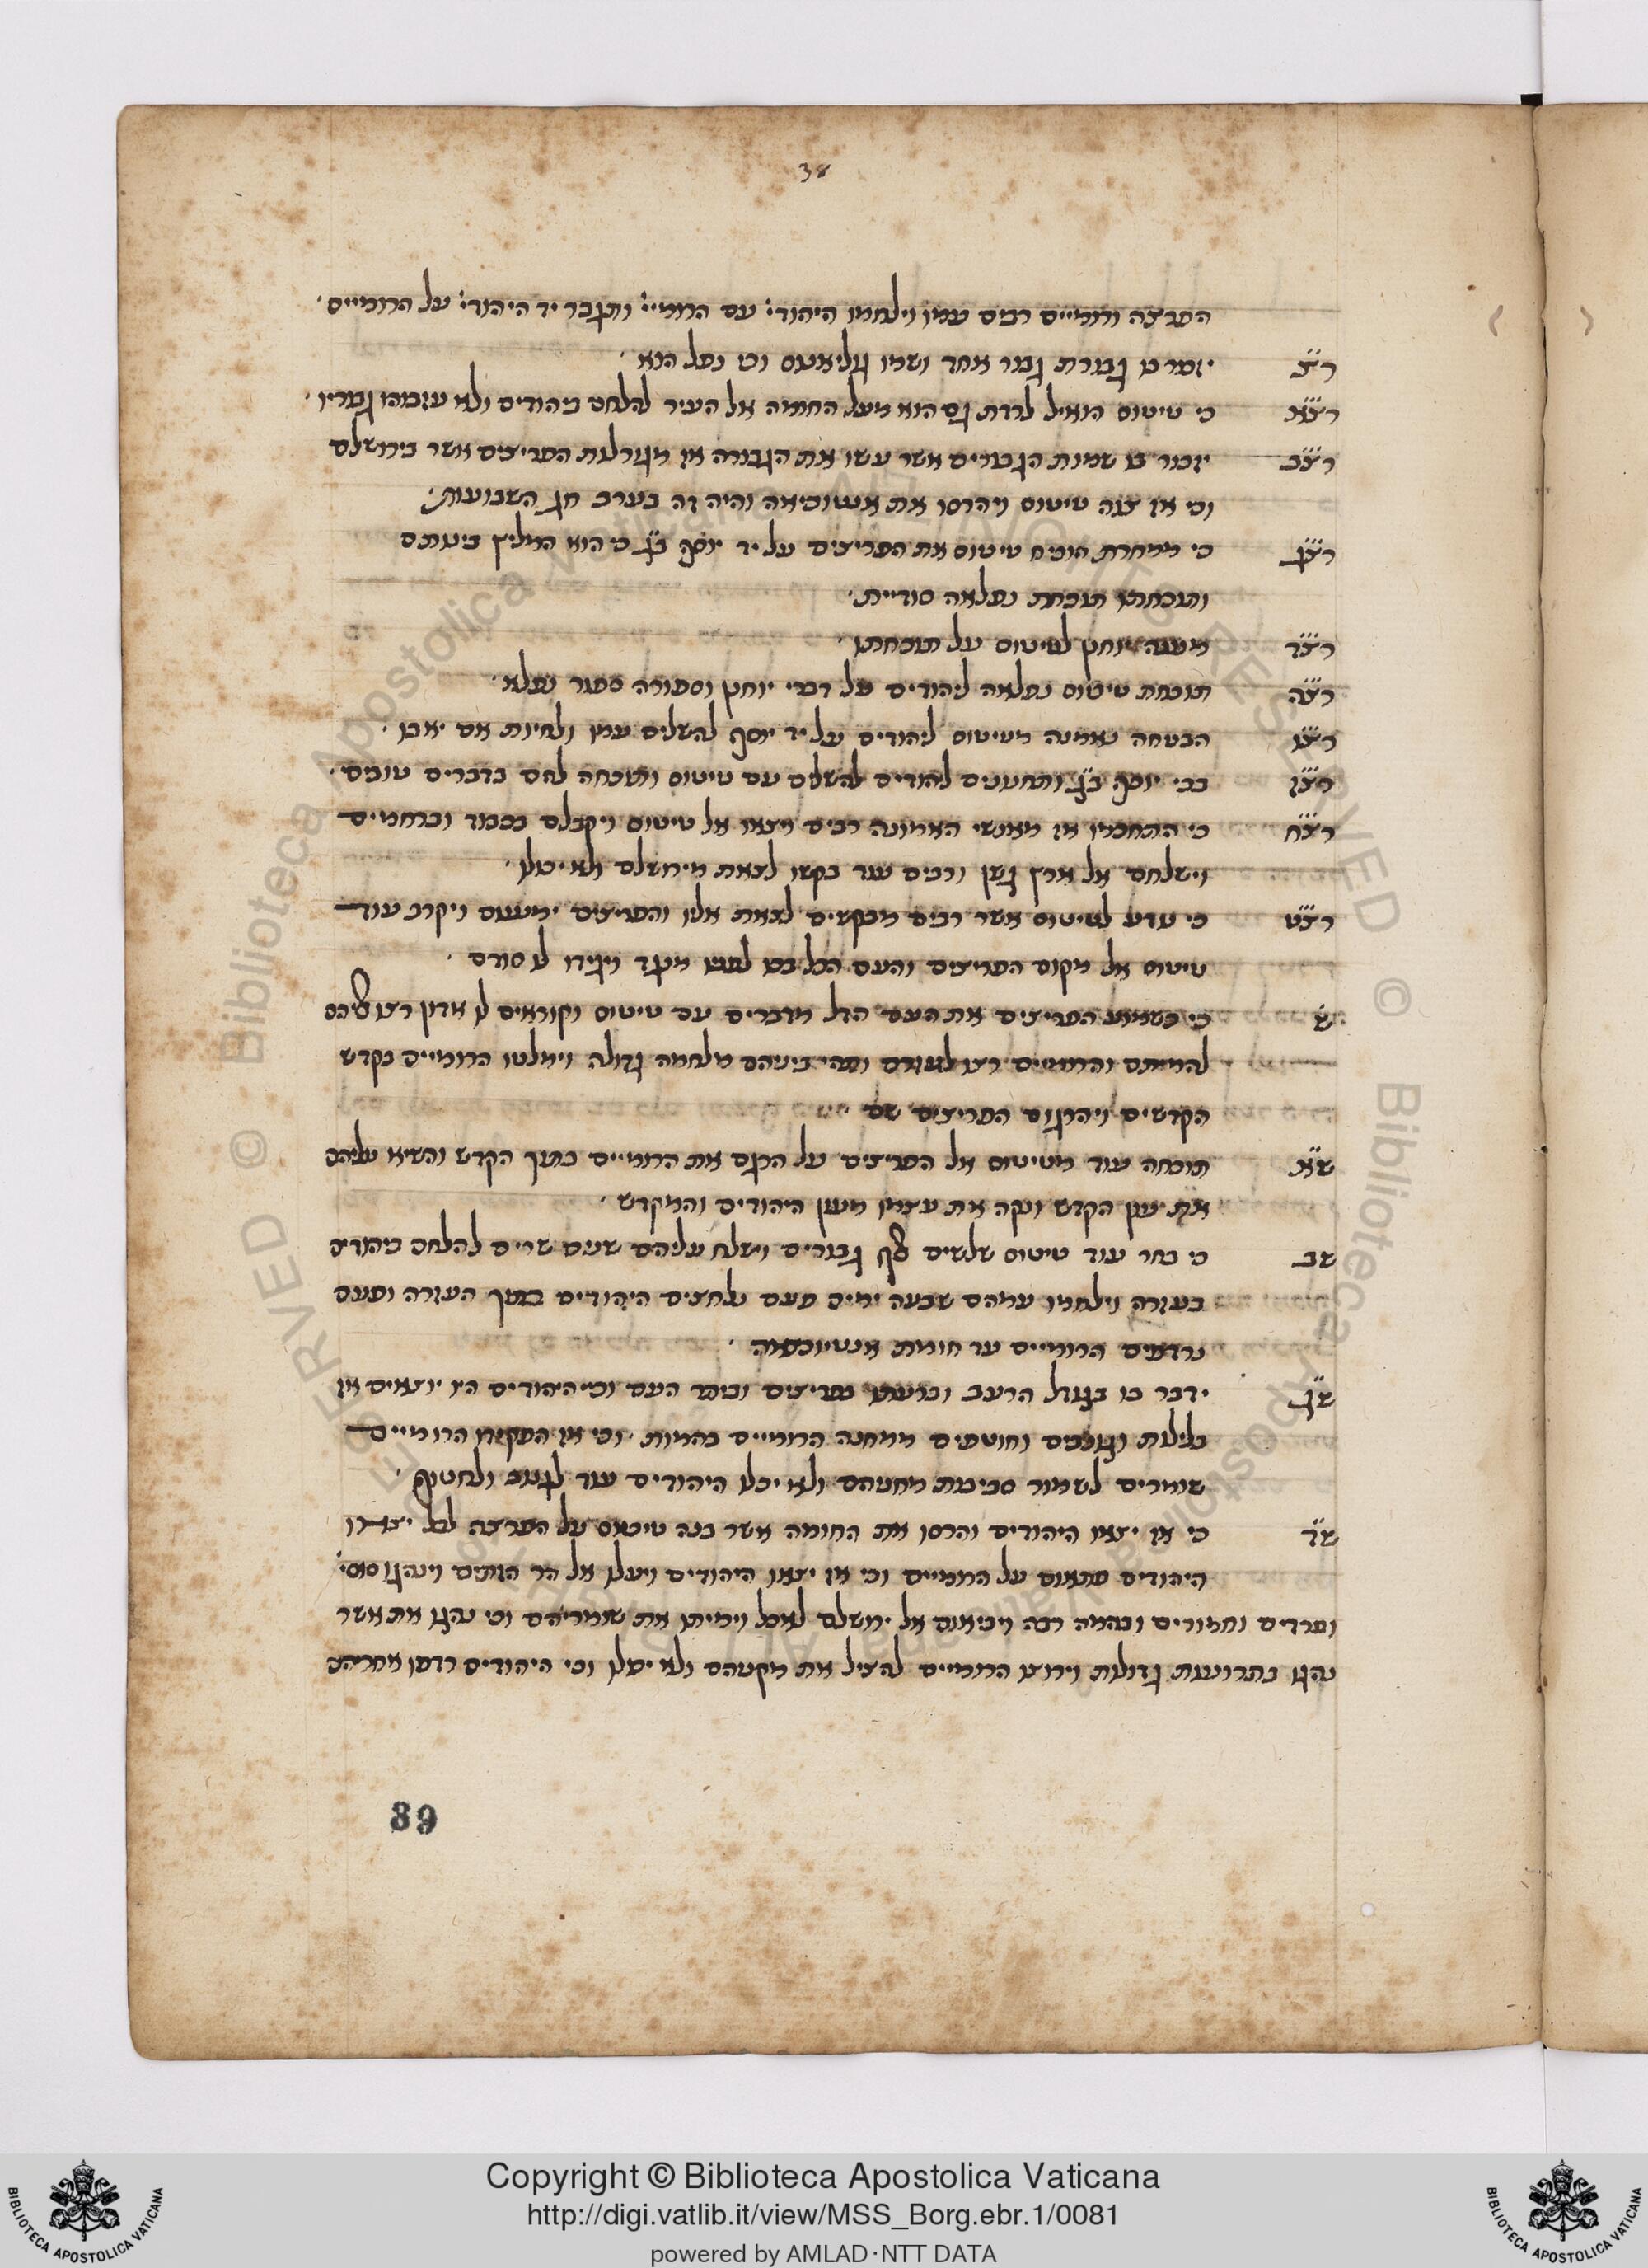 38
הפרצה ורומיים רבים עמו וילחמו היהודי׳ עם הרומיי׳ ותגבר יד היהודי׳ על הרומיים
רצ יספר בו גבורת גבור אחד ושמו וכו נפל הוא
רצא כי טיטוס הואיל לרדת גם הוא מעל החומה אל העיר להלחם ביהודים ולא עזבוהו גבוריו
רצב יזכור בו שמות הגבורים אשר עשו את הגבורה אז מגדולות הפריצים אשר בירושלם
וכי אז צוה טיטוס ויהרסו את אנטוכיאה והיה זה בערב חג השבועות
רצג כי ממחרת הוכיח טיטוס את הפריצים על יד יוסף ב״ג כי הוא המליץ בינתם
ותוכחתו תוכחת נפלאה
רצד מענה יוחנן לטיטוס על תוכחתו
רצה תוכחת טיטוס נפלאה ליהודים על דברי יוחנן וספורה ספור נפלא
רצו הבטחה נאמנה מטיטוס ליהודים על יד יוסף להשלים עמו ולחיות אם יאבו
רצז בכי יוסף ב״ג ותחנונים ליהודים להשלים עם טיטוס ותוכחה להם בדברים טובים
רצח כי התחכמו אז מאנשי האמונה רבים ויצאו אל טיטוס ויקבלם בכבוד וברחמים
וישלחם אל ארץ גשן ורבים עוד בקשו לצאת מירושלם ולא יכלו
רצט כי נודע לטיטוס אשר רבים מבקשים לצאת אליו והפריצים ימנעום ויקרב עוד
טיטוס אל מקום הפריצים והעם הכל מנגד ויגידו לו סודם
ש כי כשמוע הפריצים את העם הדל מדברים עם טיטוס וקוראים לו אדון רצו עליהם
להמיתם והרומיים רצו לעזרם ותהי ביניהם מלחמה גדולה וימלטו הרומיים בקדש
הקדשים ויהרגום הפריצים שם
שא תוכחה עוד מטיטוס אל הפריצים על הרגם את הרומיים בתוך הקדש והשיא עליהם
את עון הקדש ונקה את עצמו מעון היהודים והמקדש
שב כי בחר עוד טיטוס שלשים אלף גבורים וישלח עליהם שנים שרים להלחם ביהודים
בעזרה וילחמו עמהם שבעה ימים פעם נלחצים היהודים בתוך העזרה ופעם
נרדפים הרומיים עד חומת אנטיוכיאה
שג ידבר בו בגודל הרעב וברעתו בפריצים וביתר העם וכי היהודים היו יוצאים אז
בלילות וגונבים וחוטפים ממחנה הרומיים בהמות וכי אז הפקידו הרומיים
שומרים לשמור סביבות מחניהם ולא יכלו היהודים עוד לגנוב ולחטוף
שד כי אז יצאו היהודים והרסו את החומה אשר בנה טיטוס על הפרצה לבל יצאו
היהודים פתאום על הרומיים וכי אז יצאו היהודים ויעלו אל הר הזתים וינהגו סוסי׳
ופרדים וחמורים ובהמה רבה ויביאום אל ירושלם לאכל וימיתו את שומריהם וכי נהגו את אשר
נהגו בתרועות גדולות וירוצו הרומיים להציל את מקניהם ולא יכלו וכי היהודים רדפו אחריהם
89
Copyright © Biblioteca Apostolica Vaticana
http://digi.vatlib.it/view/MSS_Borg.ebr.1/0081
powered by AMLAD·NTT DATA